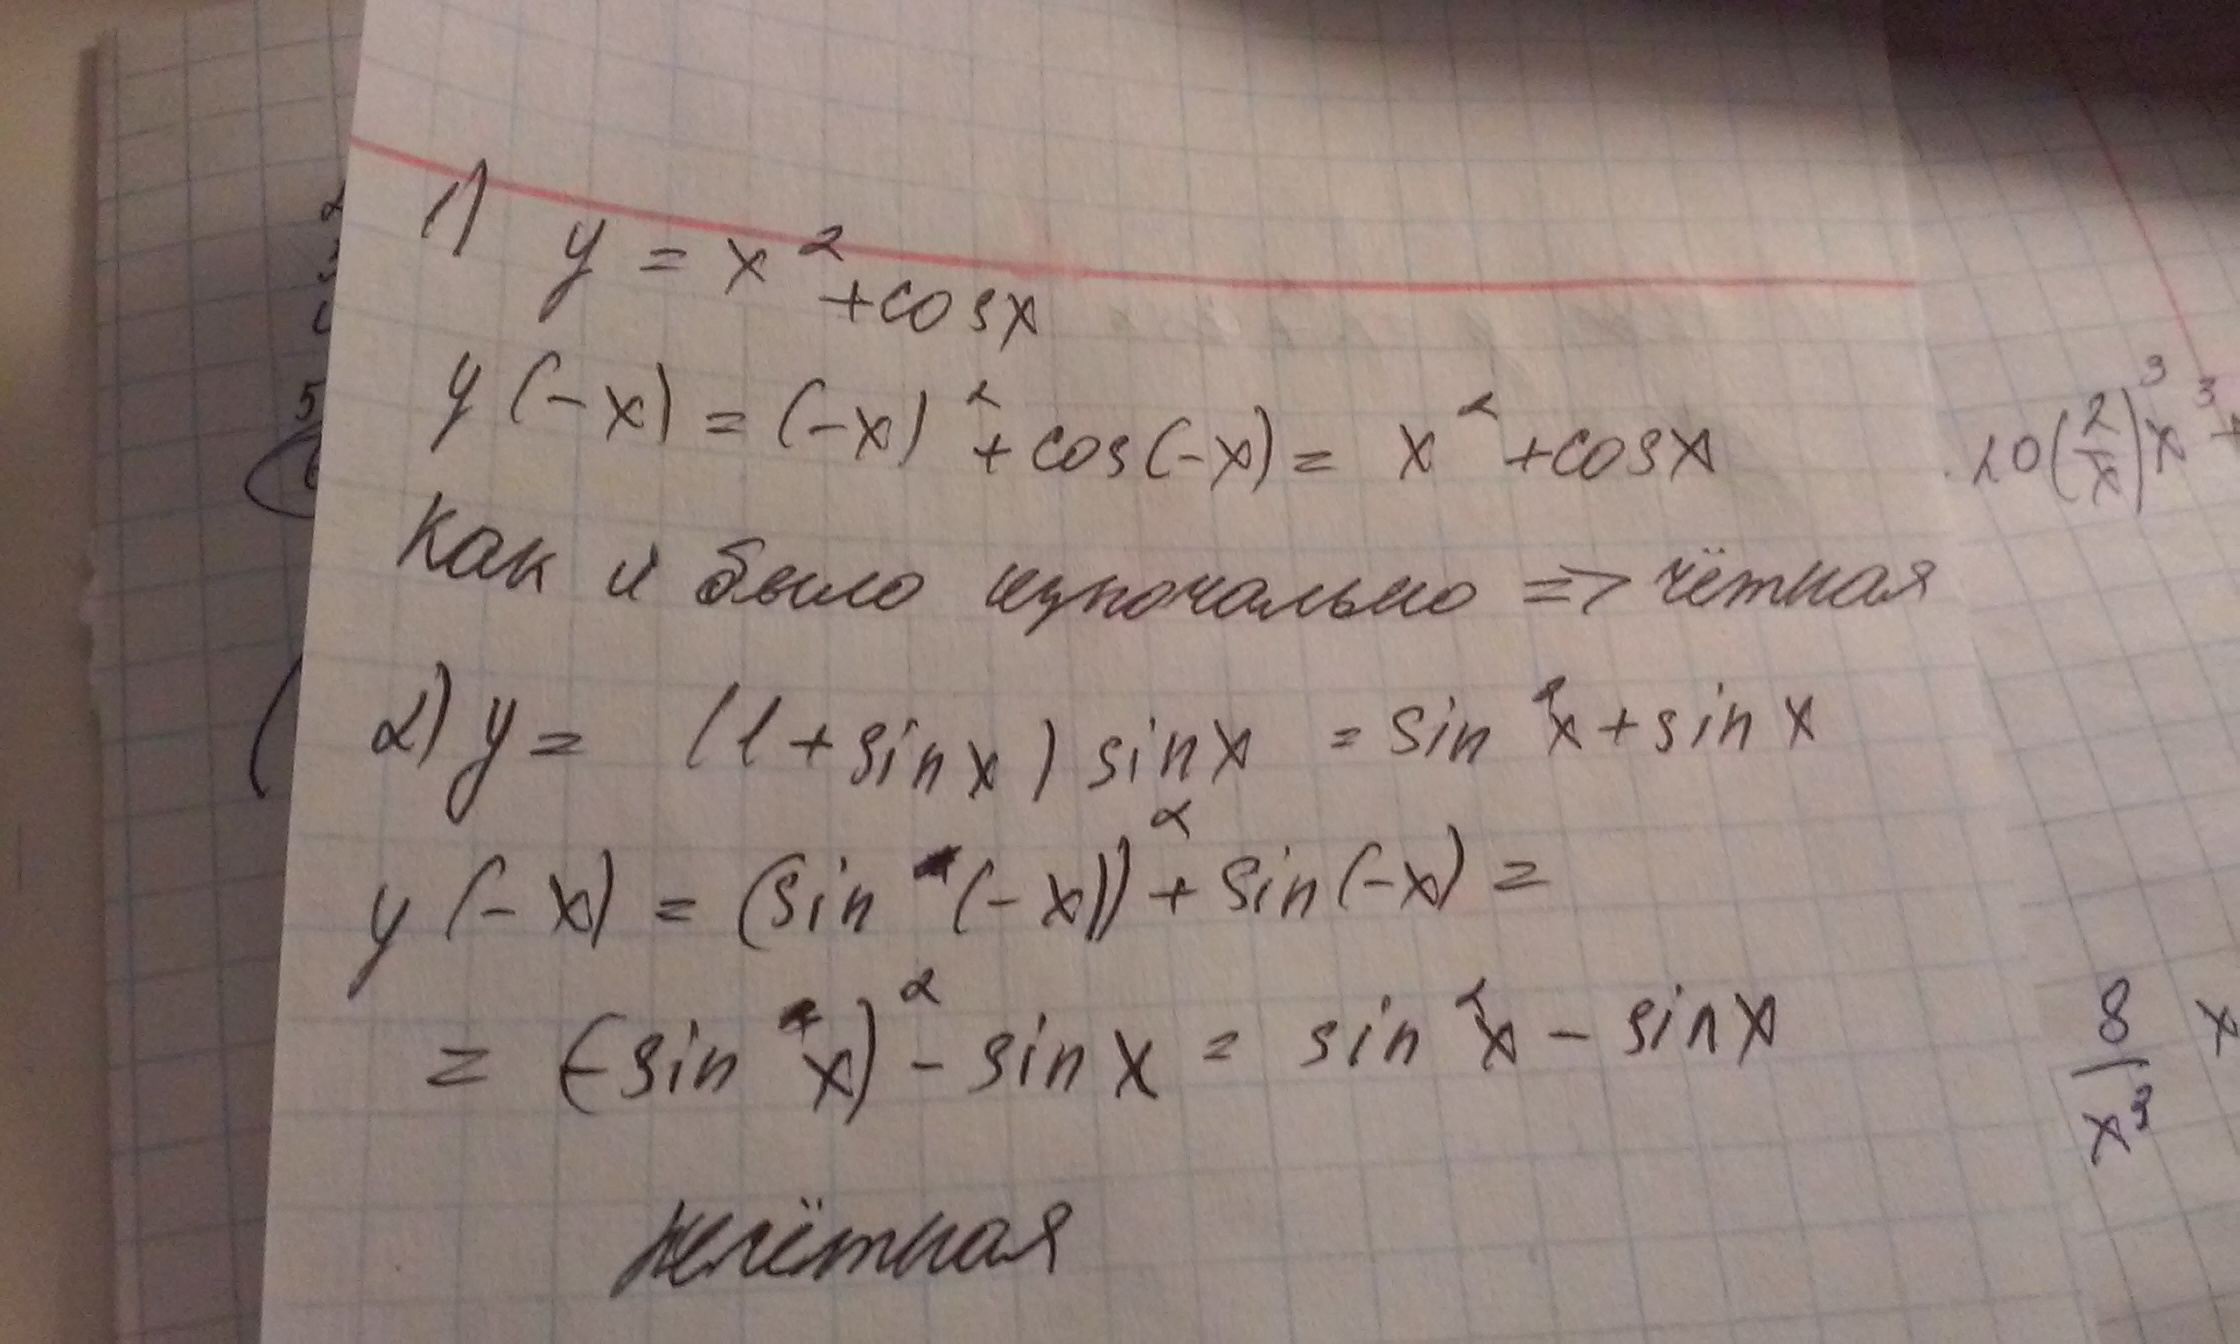 1) y = x² + cosx
y(-x) = (-x)² + cos(-x) = x² + cosx
Как и было изночально => чётная
2) y = (1 + sinx) sinx = sin²x + sin x
y(-x) = (sin(-x))² + sin(-x) =
= (-sin x)² - sin x = sin²x - sin x
нечётная
10(2/x)³x³+
8/x³ x
5